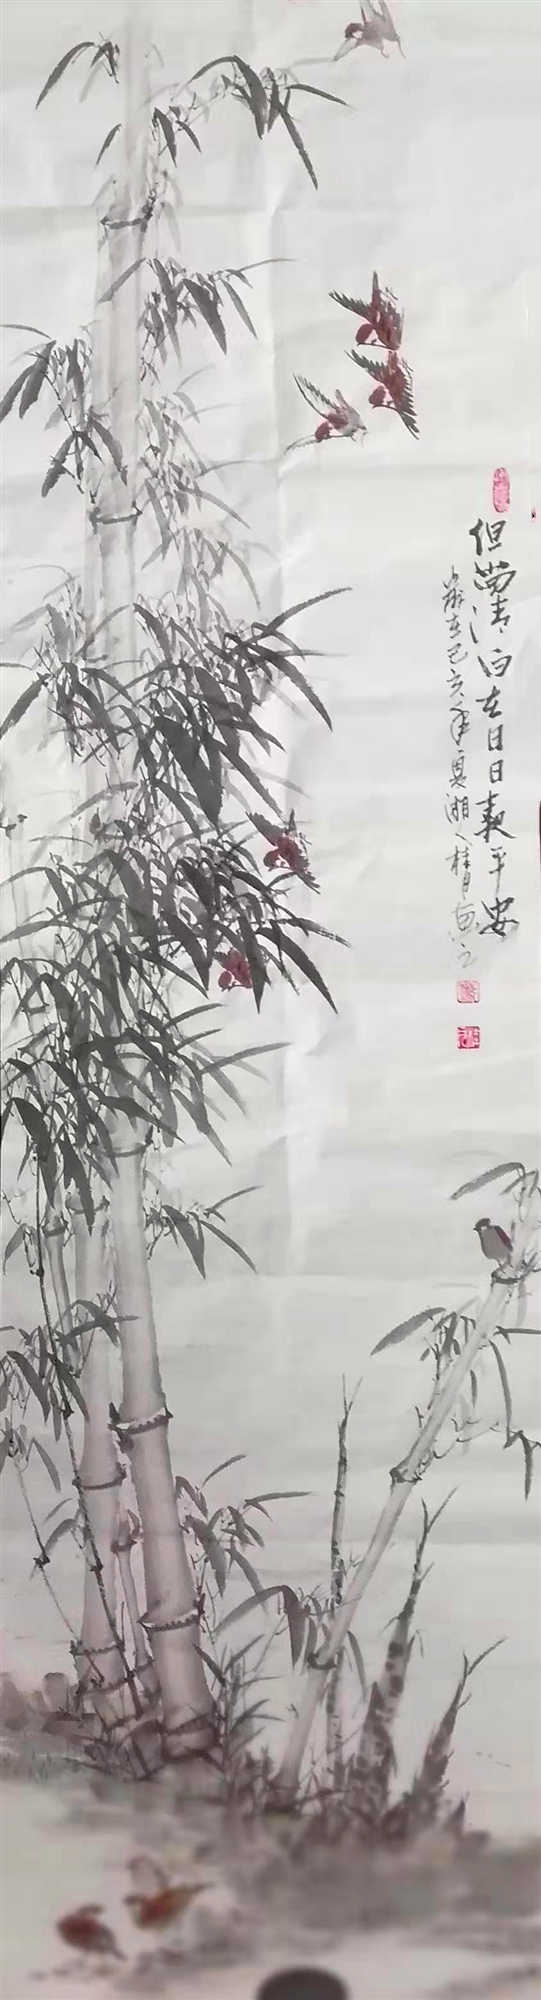 但留清白在日日报平安
岁在己亥年夏湘人桂月画之